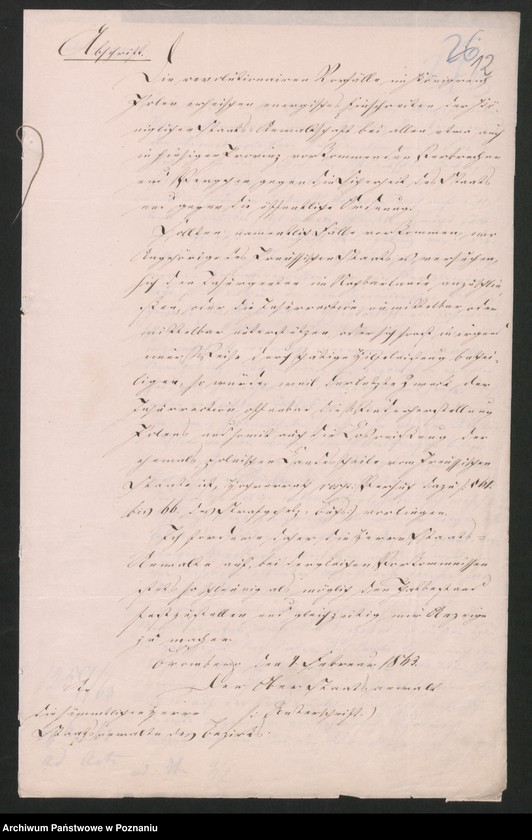 Abschrift.
26
12
Die revolutionairen Vorfälle im Königreich
Polen erheischen energisches Einschreiten der Kö-
niglichen Staats-Anwaltschaft bei allen etwa auch
in hiesiger Provinz vorkommenden Verbrechen
und Vergehen gegen die Sicherheit des Staats
und gegen die öffentliche Ordnung.
Sollten namentlich Fälle vorkommen, wo
Angehörige des Preußischen Staats es versuchen,
sich den Insurgenten im Nachbarlande anzuschlie-
ßen, oder die Insurrection unmittelbar oder
mittelbar unterstützen, oder sich sonst in irgend
einer Weise durch thätige Hilfeleistung bethei-
ligen, so würde, weil der letzte Zweck der
Insurrection offenbar die Wiederherstellung
Polens und somit auch die Losreißung der
ehemals polnischen Landestheile vom Preussischen
Staate ist, Hochverrath resp. Versuch dazu §. 61.
bis 66 des Strafgesetz-Buchs vorliegen.
Ich fordere daher die Herren Staats-
Anwalte auf, bei dergleichen Vorkommnissen
stets so schleunig als möglich den Thatbestand
festzustellen und gleichzeitig mir Anzeige
zu machen.
Bromberg den 4 Februar 1863.
Der Ober Staatsanwalt
An
die sämmtlichen Herren (: Unterschrift.)
Staatsanwalte des Bezirks.
ad Acta
Archiwum Państwowe w Poznaniu